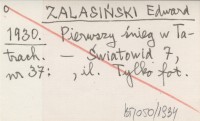 ZALASIŃSKI Edward
1930. Pierwszy śnieg w Ta-
trach. — Światowid 7,
nr 37: , il. Tylko fot.